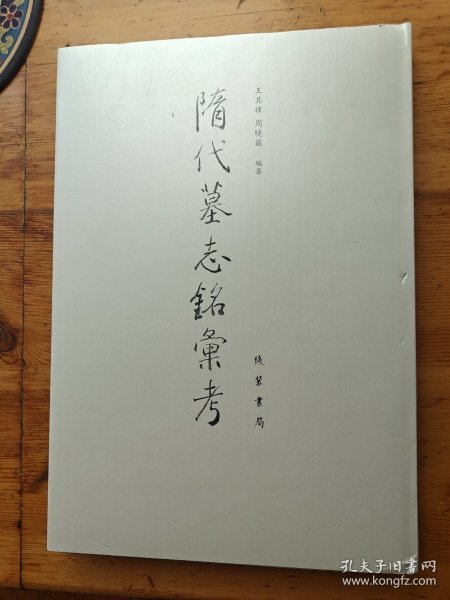 王其禕 周曉薇 編著
隋代墓志銘彙考
线装书局
孔夫子旧书网
www.kongfz.com